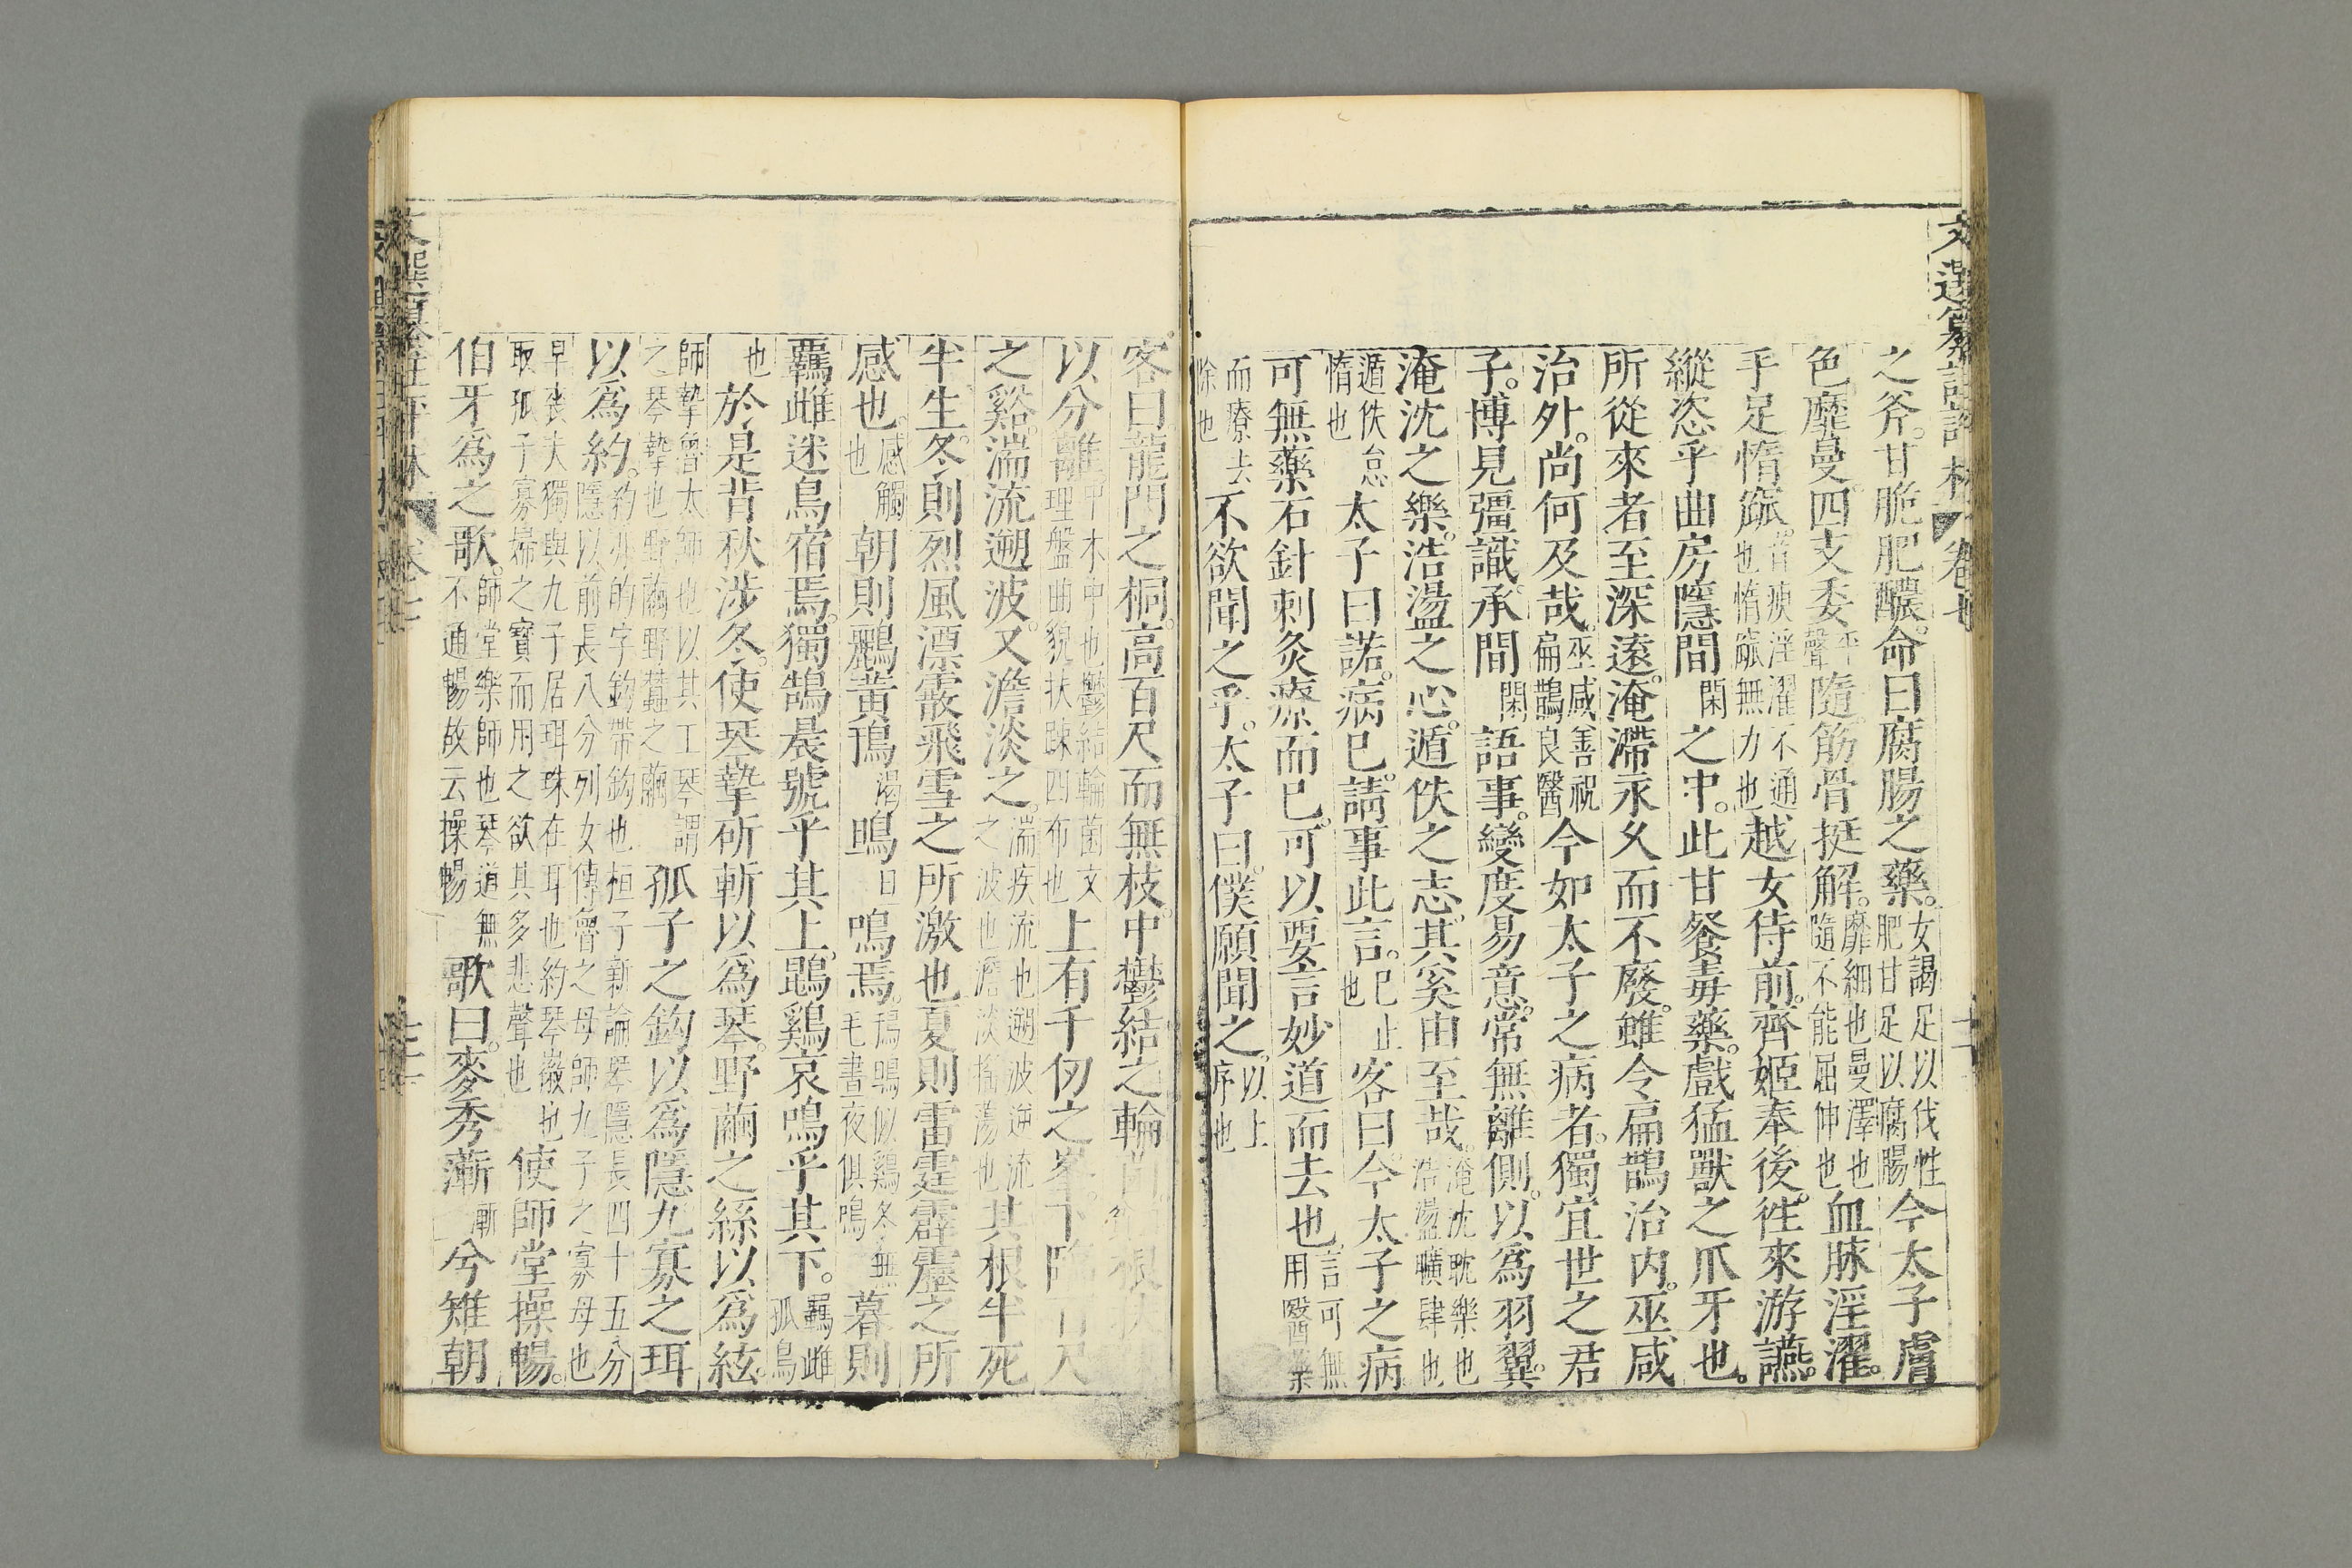 文選纂註評林 卷七
之斧。甘脆肥醲。命曰腐腸之藥。女謁足以伐性肥甘足以腐腸今太子膚
色靡曼四支委平聲隨。筋骨挺解。靡細也曼澤也隨不能屈伸也血脉淫濯。
手足惰窳。音庾淫濯不通也惰窳無力也越女侍前。齊姬奉後。徃來游讌。
縱恣乎曲房隱間閑之中。此甘餐毒藥。戲猛獸之爪牙也。
所從來者至深遠。淹滯永久而不廢。雖令扁鵲治内。巫咸
治外。尚何及哉。巫咸善祝扁鵲良醫今如太子之病者。獨宜世之君
子。博見彊識。承間閑語事。變度易意。常無離側。以爲羽翼。
淹沈之樂。浩盪之心。遁佚之志。其奚由至哉。淹沈耽樂也浩盪曠肆也
遁佚怠惰也太子曰諾。病已。請事此言。已止也客曰。今太子之病
可無藥石針刺灸療而已。可以要言妙道而去也言可無用醫藥
而療去除也不欲聞之乎。太子曰。僕願聞之。以上序也
客曰。龍門之桐。高百尺而無枝。中鬱結之輪
以分離。中木中也鬱結輪菌文理盤曲貌扶疎四布也上有千仞之峯。下
之谿。湍流遡波。又澹淡之。湍疾流也遡波逆流之波也澹淡揺蕩也其根半死
半生。冬則烈風漂霰飛雪之所激也夏則雷霆霹靂之所
感也。感觸也朝則鸝黃鳱渴鴠旦鳴焉。鳱鴠似鷄冬無毛晝夜俱鳴暮則
羈雌迷鳥宿焉。獨鵠晨號乎其上。鵾鷄哀鳴乎其下。羈雌孤鳥
也於是背秋涉冬。使琴摯斫斬以爲琴。野繭之絲以爲絃。
師摯魯太師也以其工琴謂之琴摯也野繭野蠶之繭孤子之鈎以爲隱九寡之珥
以爲約。約亦的字鈎帶鈎也桓子新論琴隱長四十五分隱以前長八分列女傳魯之母師九子之寡母也
早喪夫獨與九子居珥珠在耳也約琴徽也取孤子寡婦之寶而用之欲其多悲聲也使師堂操暢。
伯牙爲之歌。師堂樂師也琴道無不通暢故云操暢歌曰。麥秀漸漸兮雉朝